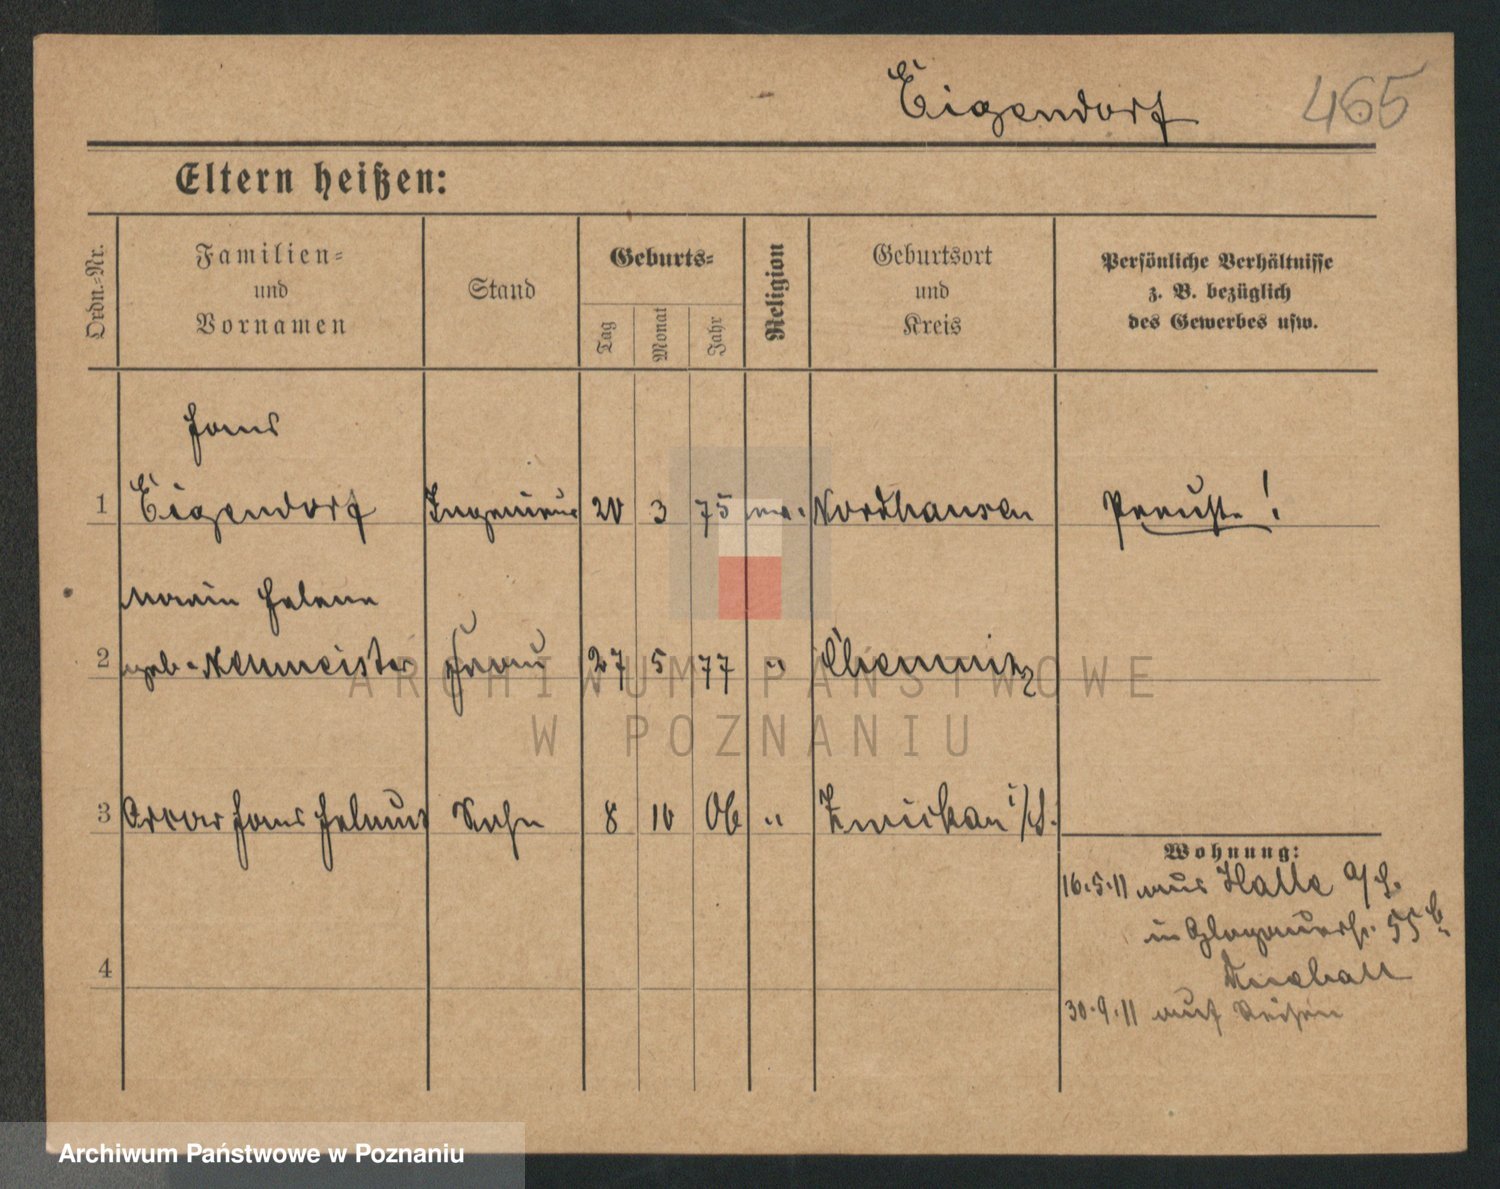 Eigendorf 465
Eltern heißen:
Ordn.-Nr.
Familien-
und
Vornamen
Stand
Geburts-
Tag
Monat
Jahr
Religion
Geburtsort
und
Kreis
Persönliche Verhältnisse
z. B. bezüglich
des Gewerbes usw.
Hans
1 Eigendorf Ingenieur 20 3 75 ev. Nordhausen Preuße!
Marie Helene
2 geb. Neumeister Frau 27 5 77 " Chemnitz
3 Oscar Hans Helmut Sohn 8 10 06 " Zwickau i/S.
Wohnung:
16.5.11 aus Halle a/S.
in Glogauerstr. 55
4
30.9.11 auf Reisen
ARCHIWUM PAŃSTWOWE
W POZNANIU
Archiwum Państwowe w Poznaniu